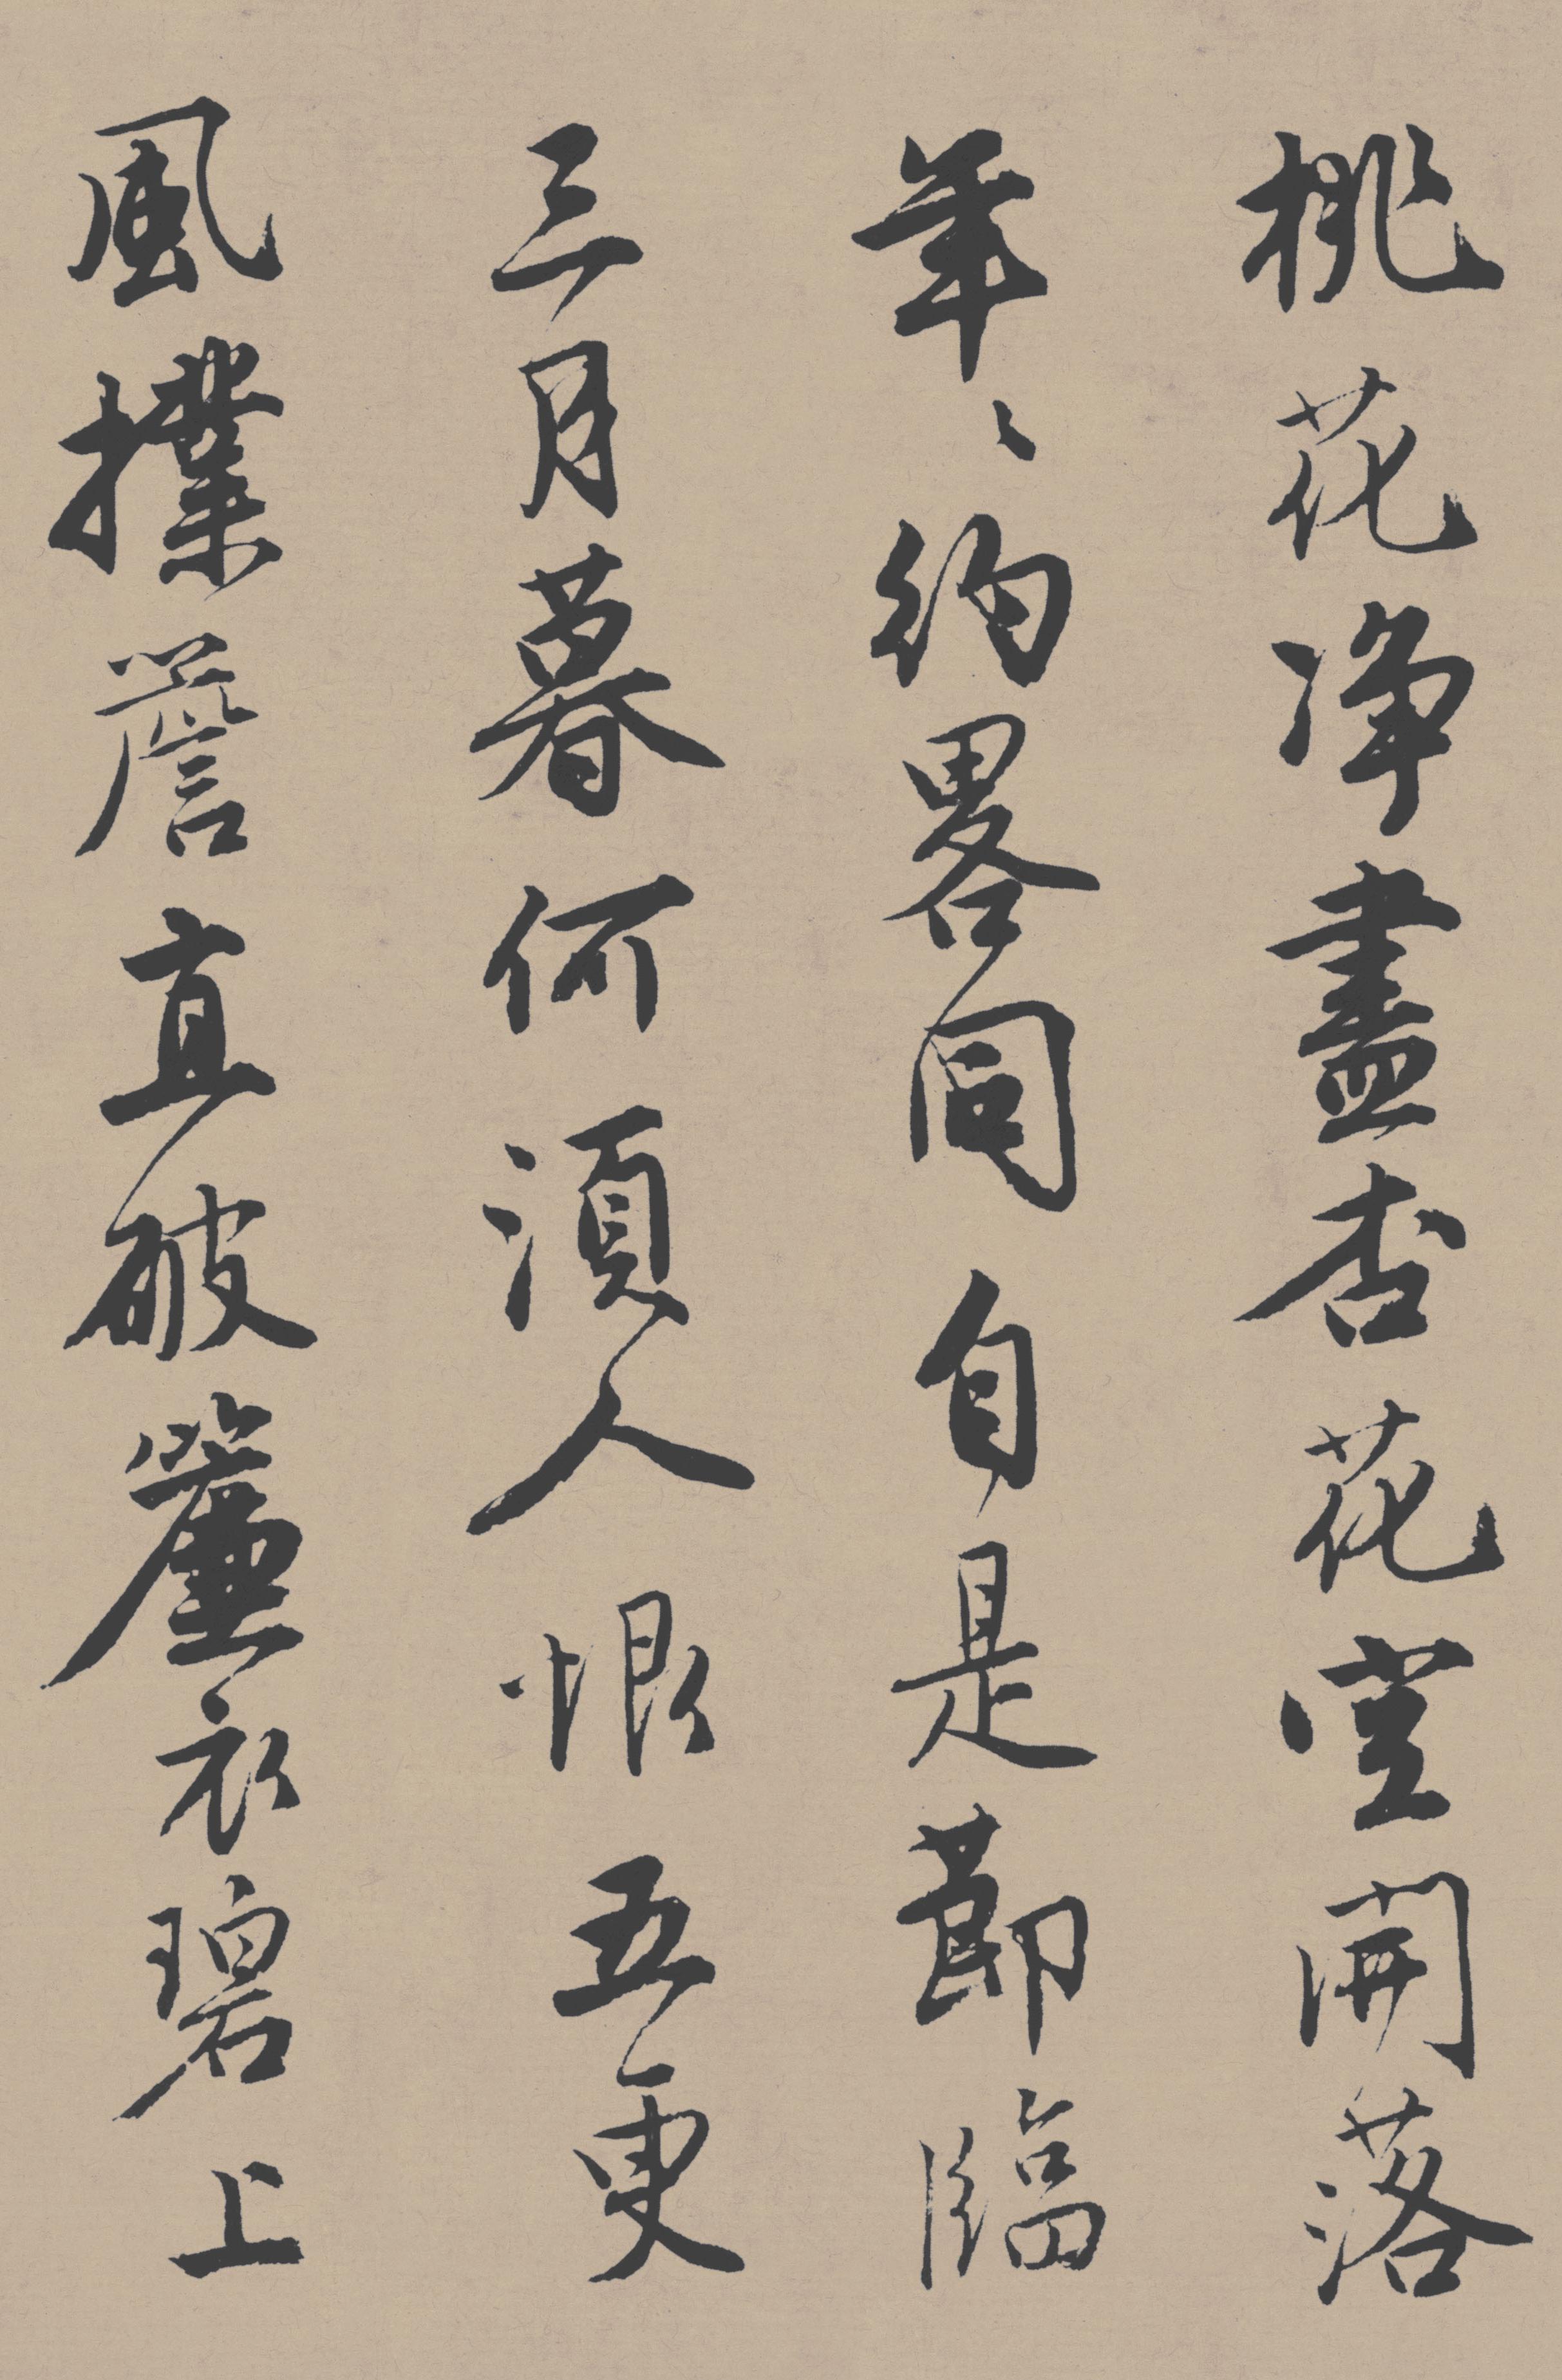 桃花淨盡杏花空開落
年〻約畧同自是節臨
三月暮何須人恨五更
風撲簷直破簾衣碧上